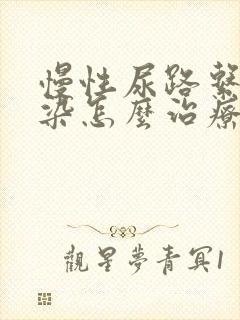 慢性尿路
染怎麼治療
觀星夢青冥1